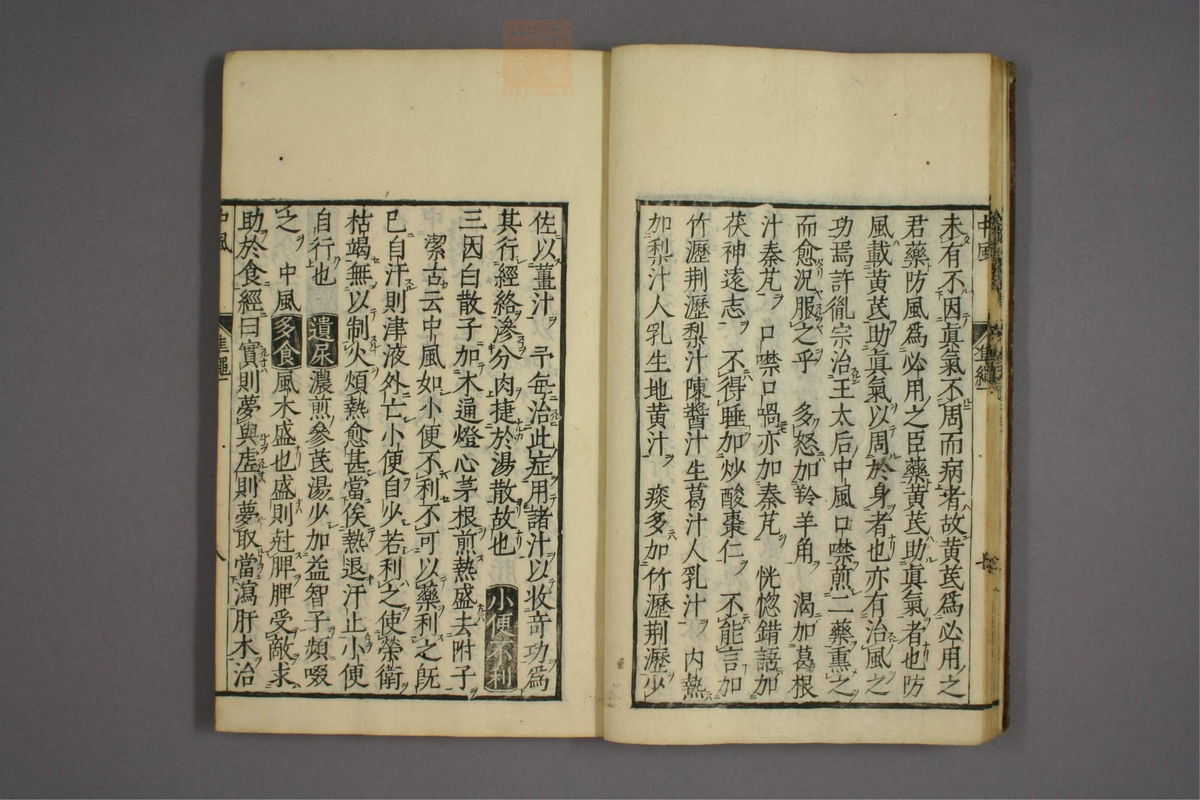 未有不因眞氣不周而病者故黃芪爲必用之
君藥防風爲必用之臣藥黃芪助眞氣者也防
風載黃芪助眞氣以周於身者也亦有治風之
功焉許胤宗治王太后中風口噤煎二藥熏之
而愈況服之乎 多怒加羚羊角 渴加葛根
汁秦艽 口噤口喎亦加秦艽 恍惚錯語加
茯神遠志 不得睡加炒酸棗仁 不能言加
竹瀝荆瀝梨汁陳醬汁生葛汁人乳汁 內熱
加梨汁人乳生地黃汁 痰多加竹瀝荆瀝少
佐以薑汁 予每治此症用諸汁以收奇功爲
其行經絡滲分肉捷於湯散故也 小便不利
三因白散子加木通燈心茅根煎熱盛去附子
潔古云中風如小便不利不可以藥利之旣
已自汗則津液外亡小便自少若利之使榮衛
枯竭無以制火煩熱愈甚當俟熱退汗止小便
自行也 遺尿濃煎參芪湯少加益智子頻啜
之 中風多食風木盛也盛則尅脾脾受敵求
助於食經曰實則夢與虛則夢取當瀉肝木治
中風 準繩 八